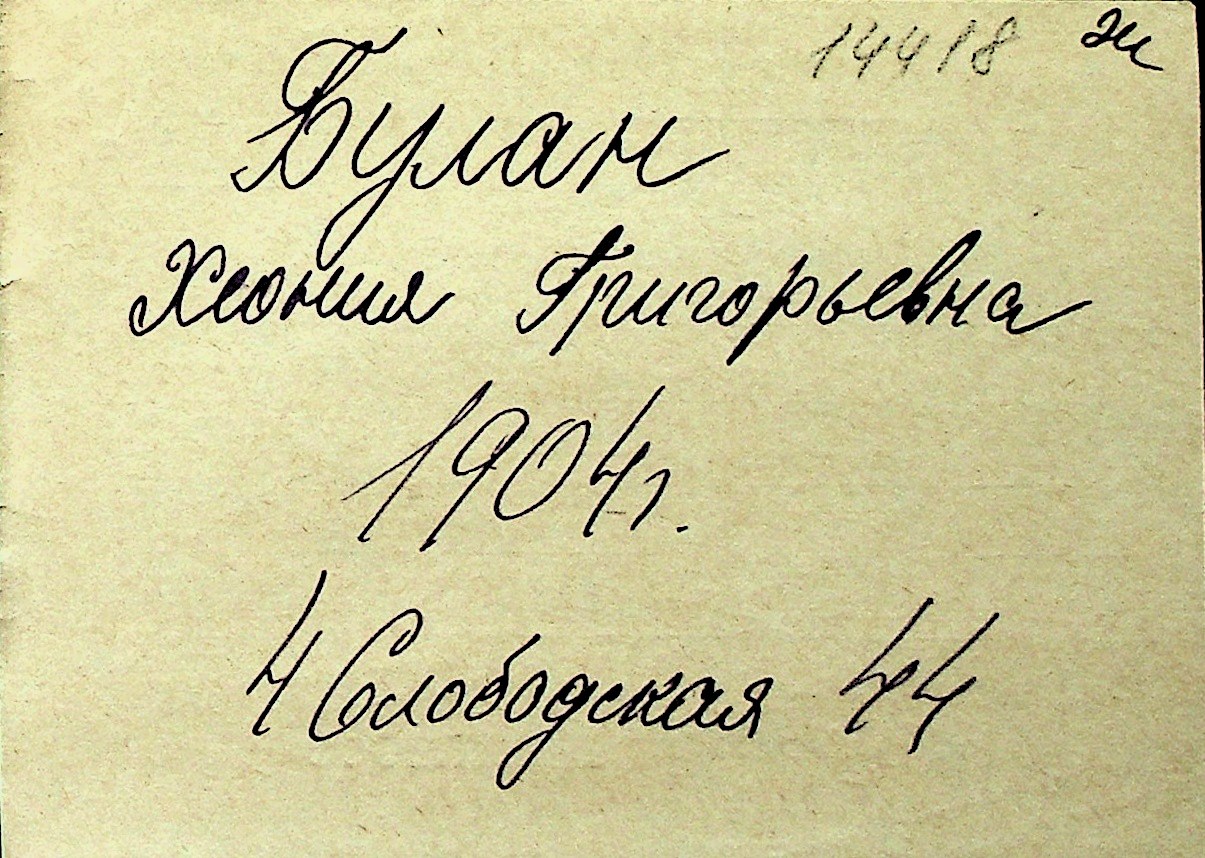 14418 ж
Булан
Хеония Григорьевна
1904г.
4 Слободская 44